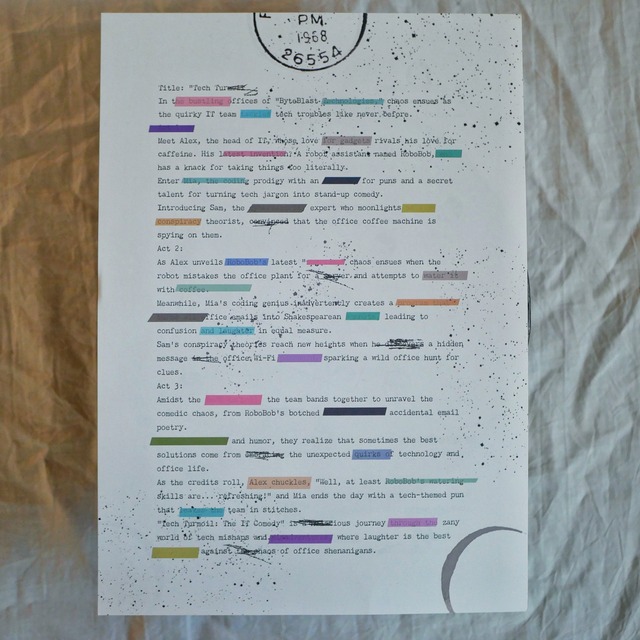 PM
1968
26554
Title: "Tech
In the bustling offices of "ByteBlast Technologies," chaos ensues as
the quirky IT team tech troubles like never before.
Meet Alex, the head of IT, whose love for gadgets rivals his love for
caffeine. His latest invention: A robot assistant named RoboBob,
has a knack for taking things too literally.
Enter Mia, the coding prodigy with an for puns and a secret
talent for turning tech jargon into stand-up comedy.
Introducing Sam, expert who moonlights
conspiracy theorist, convinced that the office coffee machine is
spying on them.
Act 2:
As Alex unveils RoboBob's latest " chaos ensues when the
robot mistakes the office plant for a and attempts to water it
with coffee.
Meanwhile, Mia's coding genius inadvertently creates a
office emails into Shakespearean leading to
confusion and laughter in equal measure.
Sam's conspiracy theories reach new heights when he a hidden
message in the office Wi-Fi sparking a wild office hunt for
clues.
Act 3:
Amidst the the team bands together to unravel the
comedic chaos, from RoboBob's botched accidental email
poetry.
and humor, they realize that sometimes the best
solutions come from the unexpected quirks of technology and
office life.
As the credits roll, Alex chuckles, "Well, at least RoboBob's watering
skills are... refreshing!" and Mia ends the day with a tech-themed pun
that the team in stitches.
"Tech Turmoil: The IT Comedy" is journey through the zany
world of tech mishaps and where laughter is the best
against the chaos of office shenanigans.